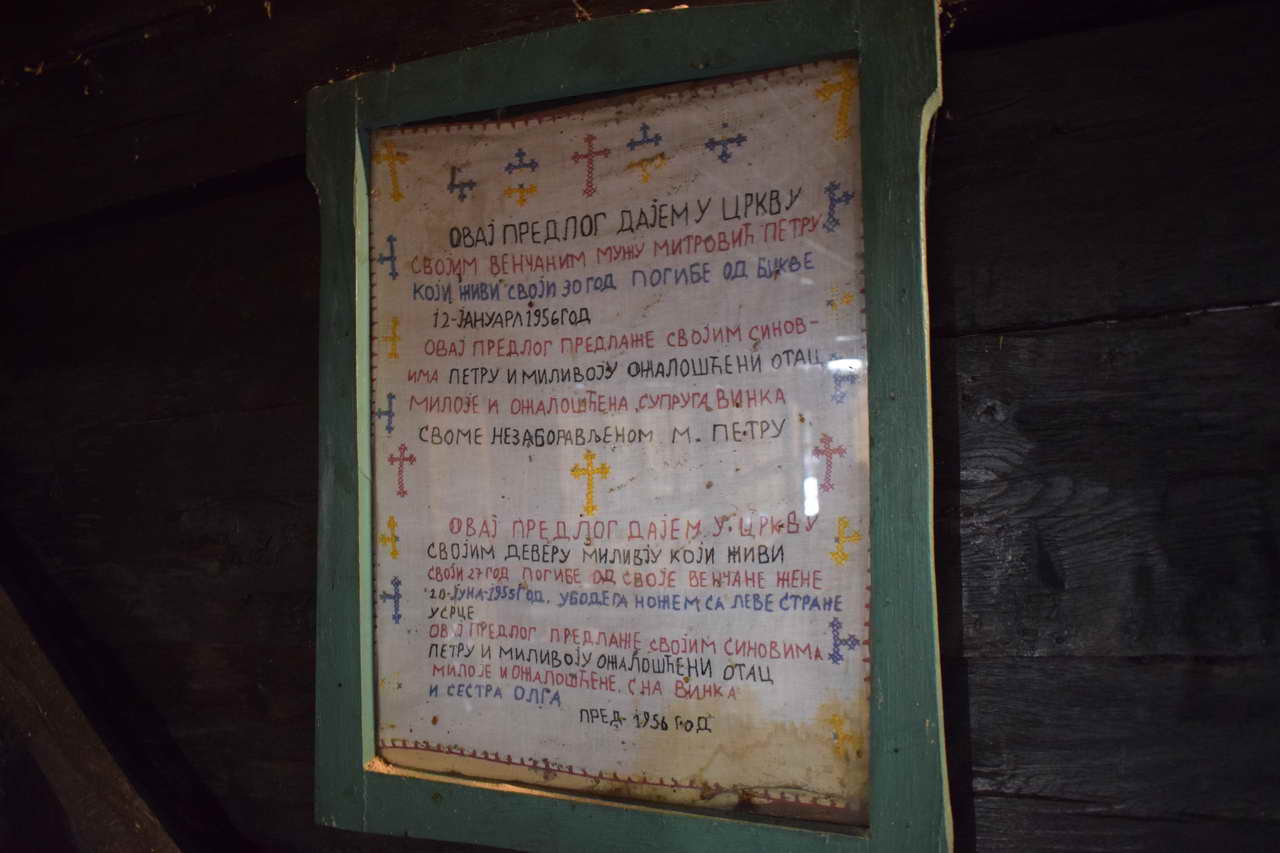 ОВАЈ ПРЕДЛОГ ДАЈЕМ У ЦРКВУ
СВОЈИМ ВЕНЧАНИМ МУЖУ МИТРОВИЋ ПЕТРУ
КОЈИ ЖИВИ СВОЈИ 30 ГОД ПОГИБЕ ОД БУКВЕ
12-ЈАНУАРА 1956 ГОД
ОВАЈ ПРЕДЛОГ ПРЕДЛАЖЕ СВОЈИМ СИНОВ-
ИМА ПЕТРУ И МИЛИВОЈУ ОЖАЛОШЋЕНИ ОТАЦ
МИЛОЈЕ И ОЖАЛОШЋЕНА СУПРУГА ВИНКА
СВОМЕ НЕЗАБОРАВЉЕНОМ М. ПЕТРУ
ОВАЈ ПРЕДЛОГ ДАЈЕМ У ЦРКВУ
СВОЈИМ ДЕВЕРУ МИЛИВЈУ КОЈИ ЖИВИ
СВОЈИ 27 ГОД ПОГИБЕ ОД СВОЈЕ ВЕНЧАНЕ ЖЕНЕ
20-ЈУНА-1955 ГОД. УБОДЕГА НОЖЕМ СА ЛЕВЕ СТРАНЕ
УСРЦЕ
ОВАЈ ПРЕДЛОГ ПРЕДЛАЖЕ СВОЈИМ СИНОВИМА
ПЕТРУ И МИЛИВОЈУ ОЖАЛОШЋЕНИ ОТАЦ
МИЛОЈЕ И ОЖАЛОШЋЕНЕ. СНА ВИНКА
И СЕСТРА ОЛГА
ПРЕД- 1956 ГОД